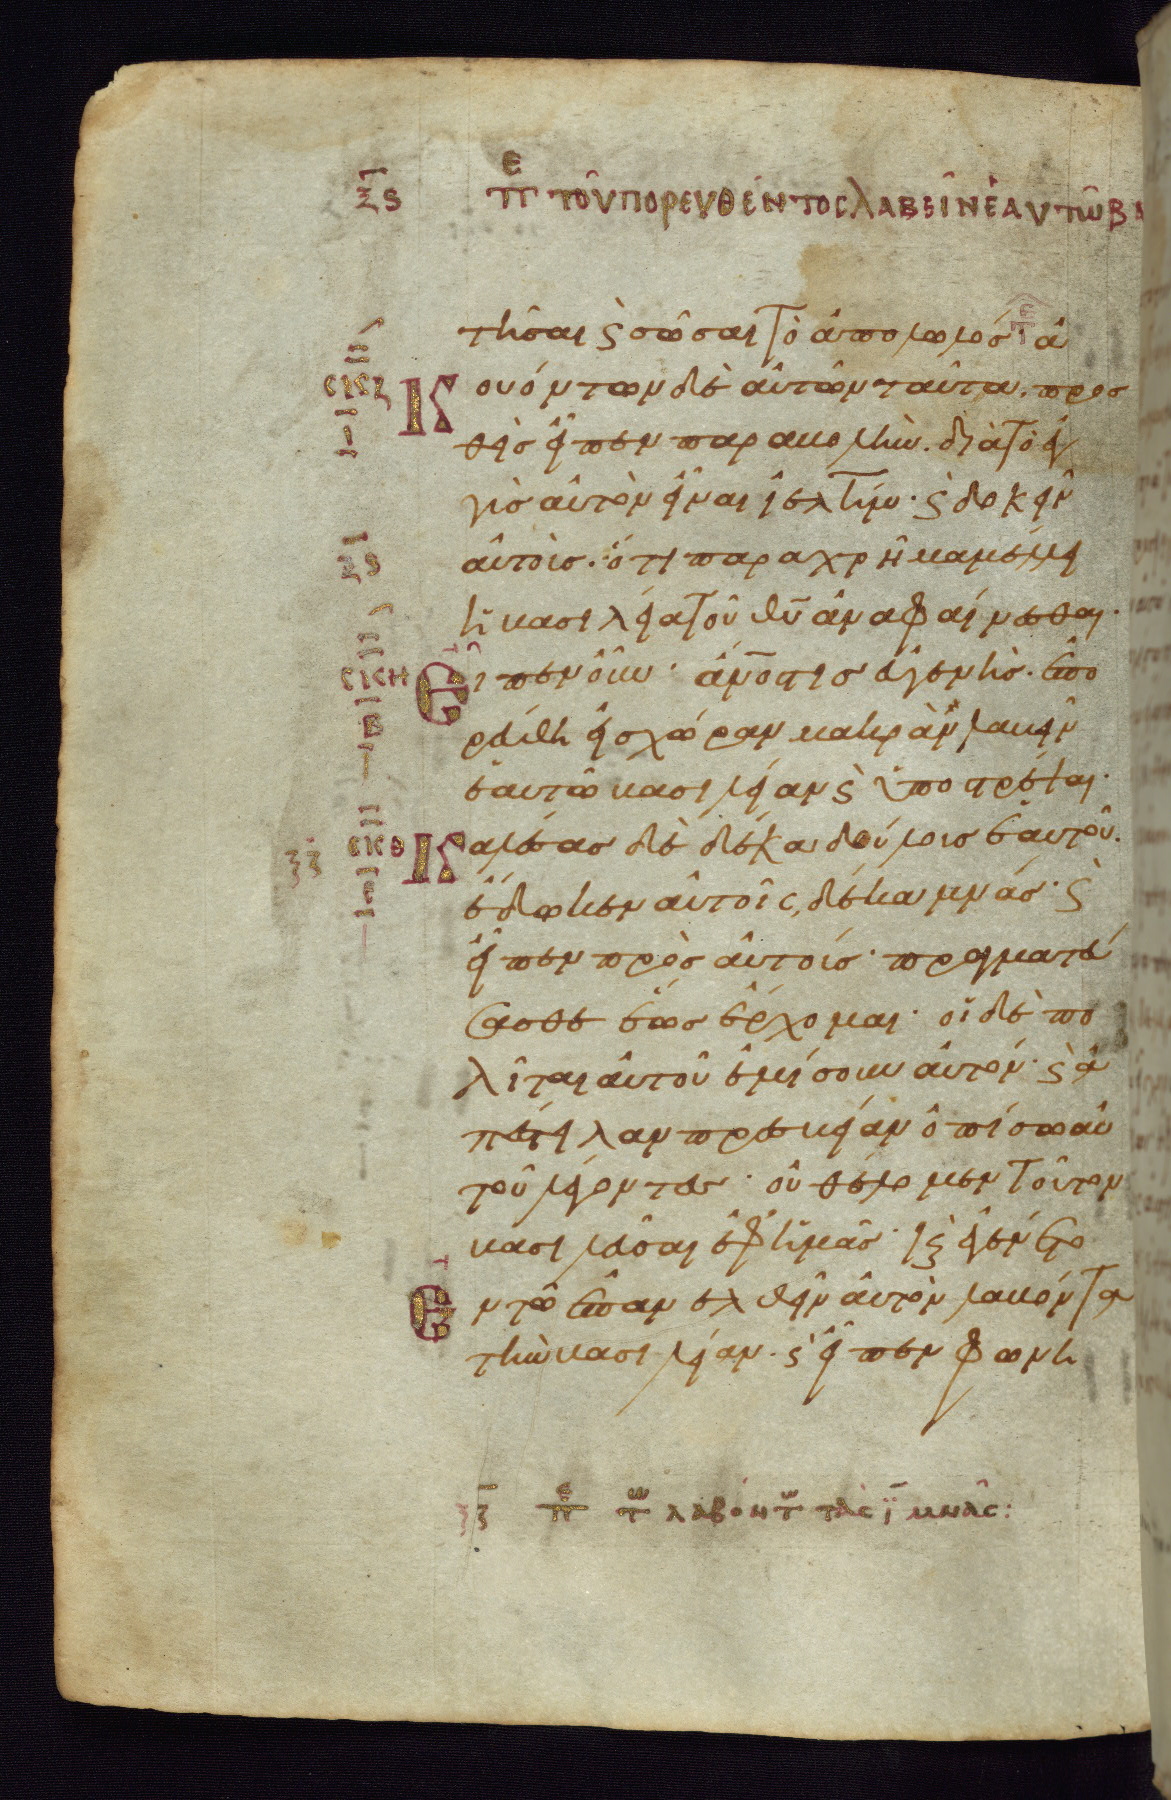 ξς πε τοῦ πορευθέντος λαβεῖν ἑαυτῶ βα
τῆσαι ϗ σῶσαι τὸ ἀπολωλός· ἀ
σκζ
ι
Κουόντων δὲ αὐτῶν ταῦτα, προσ
θεὶς εἶπεν παραβολὴν. διὰ τὸ ἐγ
γὺς αὐτὸν εἶναι ϊελτημ· ϗ δοκεῖν
ξς
αὐτοὺς· ὅτι παραχρῆμα μέλλει
ἡ βασιλεία τοῦ θυ ἀναφαίνεσθαι·
σκη
β
Εἶπεν οὖν· ἄνος τις εὐγενὴς· ἐπο
ρεύθη εἰς χώραν μακρὰν λαβεῖν
ἑαυτῶ βασιλείαν ϗ ὑποστρέψαι·
ξζ
σκθ
Καλέσας δὲ δέκα δούλους ἑαυτοῦ·
ἔδωκεν αὐτοῖς, δέκα μνάς· ϗ
εἶπεν πρὸς αὐτούς· πραγματεύ
σασθε ἕως ἔρχομαι· οἱ δὲ πο
λῖται αὐτοῦ ἐμίσουν αὐτόν· ϗ ἀ
πέστειλαν πρεσβείαν ὀπίσω αὐ
τοῦ λέγοντες· οὐ θέλομεν τοῦτον
βασιλεῦσαι ἐφ ἡμᾶς· ϗ ἐγένετο
Εν τῶ ἐπανελθεῖν αὐτὸν λαβόντα
τὴν βασιλείαν· ϗ εἶπεν φωνη
ξζ πε τω λαβόντω τὰς ϊ μνᾶς: